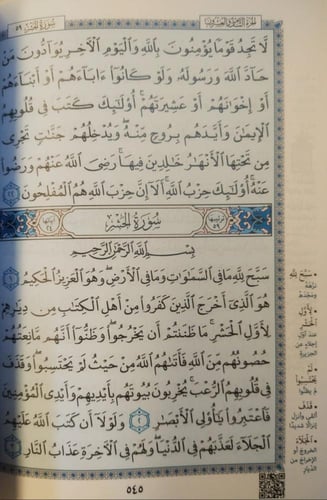 سُورَةُ الحَشْرِ ٥٩
الجُزْءُ الثَّامِنُ وَالعِشْرُونَ
لَّا تَجِدُ قَوْمًا يُؤْمِنُونَ بِاللَّهِ وَالْيَوْمِ الْآخِرِ يُوَادُّونَ مَنْ
حَادَّ اللَّهَ وَرَسُولَهُ وَلَوْ كَانُوا ءَابَاءَهُمْ أَوْ أَبْنَاءَهُمْ
أَوْ إِخْوَانَهُمْ أَوْ عَشِيرَتَهُمْ ۚ أُولَٰئِكَ كَتَبَ فِي قُلُوبِهِمُ
الْإِيمَانَ وَأَيَّدَهُم بِرُوحٍ مِّنْهُ ۖ وَيُدْخِلُهُمْ جَنَّاتٍ تَجْرِي
مِن تَحْتِهَا الْأَنْهَارُ خَالِدِينَ فِيهَا ۚ رَضِيَ اللَّهُ عَنْهُمْ وَرَضُوا
عَنْهُ ۚ أُولَٰئِكَ حِزْبُ اللَّهِ ۚ أَلَا إِنَّ حِزْبَ اللَّهِ هُمُ الْمُفْلِحُونَ ٢٢
ترتيبها ٥٩ سُورَةُ الحَشْرِ آياتها ٢٤
بِسْمِ اللَّهِ الرَّحْمَٰنِ الرَّحِيمِ
سَبَّحَ لِلَّهِ مَا فِي السَّمَاوَاتِ وَمَا فِي الْأَرْضِ ۖ وَهُوَ الْعَزِيزُ الْحَكِيمُ ١
هُوَ الَّذِي أَخْرَجَ الَّذِينَ كَفَرُوا مِنْ أَهْلِ الْكِتَابِ مِن دِيَارِهِمْ
لِأَوَّلِ الْحَشْرِ ۚ مَا ظَنَنتُمْ أَن يَخْرُجُوا ۖ وَظَنُّوا أَنَّهُم مَّانِعَتُهُمْ
حُصُونُهُم مِّنَ اللَّهِ فَأَتَاهُمُ اللَّهُ مِنْ حَيْثُ لَمْ يَحْتَسِبُوا ۖ وَقَذَفَ
فِي قُلُوبِهِمُ الرُّعْبَ ۚ يُخْرِبُونَ بُيُوتَهُم بِأَيْدِيهِمْ وَأَيْدِي الْمُؤْمِنِينَ
فَاعْتَبِرُوا يَا أُولِي الْأَبْصَارِ ٢ وَلَوْلَا أَن كَتَبَ اللَّهُ عَلَيْهِمُ
الْجَلَاءَ لَعَذَّبَهُمْ فِي الدُّنْيَا ۖ وَلَهُمْ فِي الْآخِرَةِ عَذَابُ النَّارِ ٣
٥٤٥
سَبَّحَ لِلَّهِ